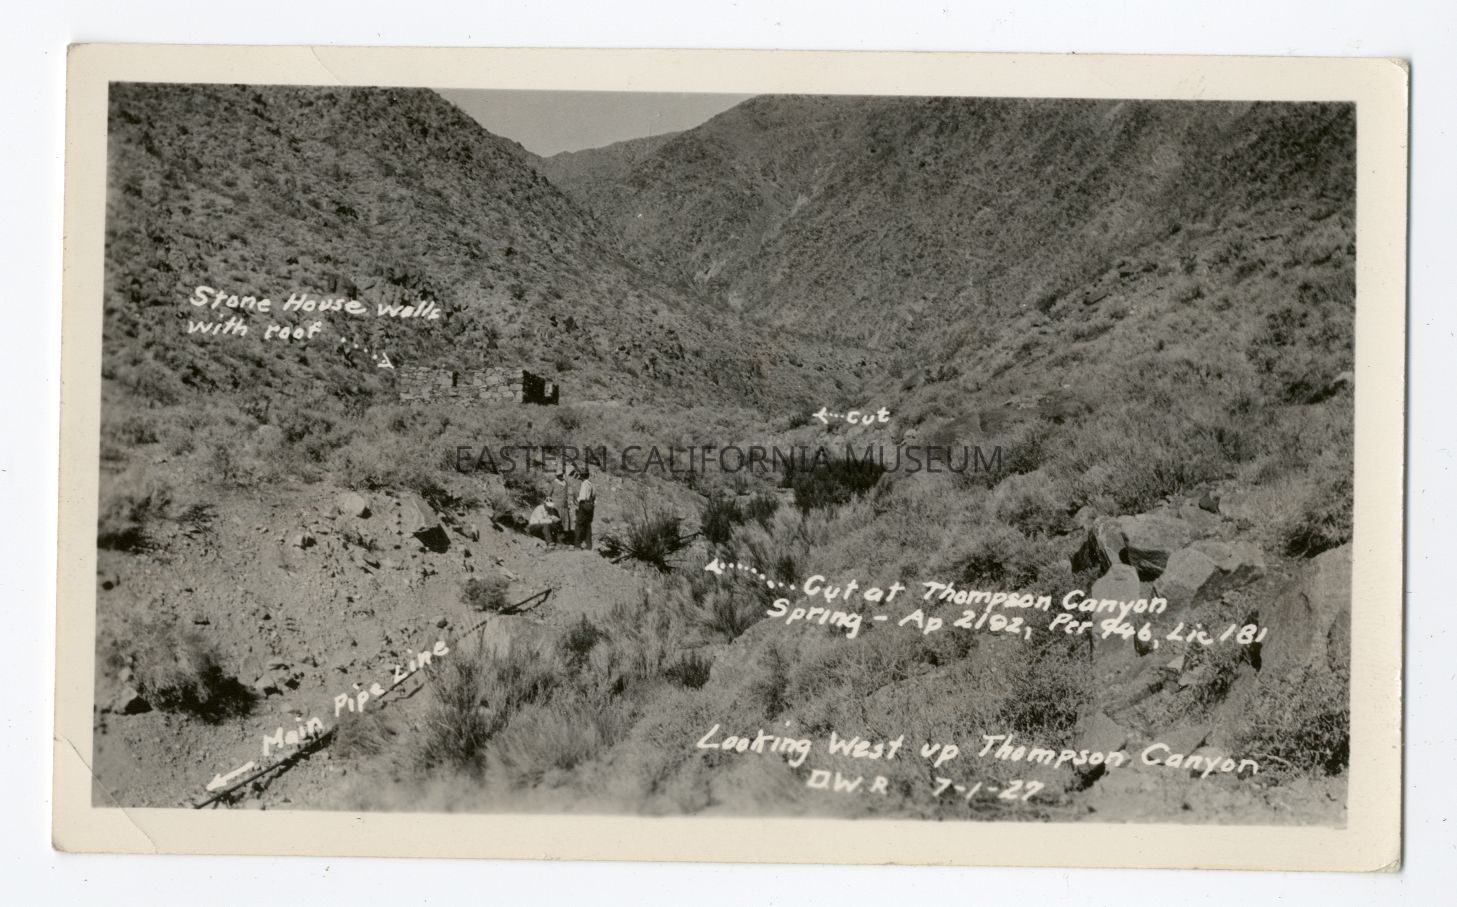 Stone House walls
with roof
Cut
EASTERN CALIFORNIA MUSEUM
Cut at Thompson Canyon
Spring - Ap 2192, Per 946, Lic 181
Main Pipe Line
Looking West up Thompson Canyon
D.W.R 7-1-27